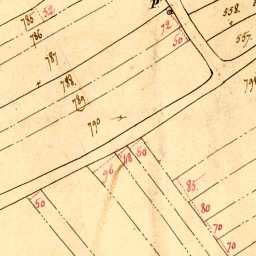 785 52
786
787
788
789
790
72
50
558
557
96 68 50
50
85
80
70
70